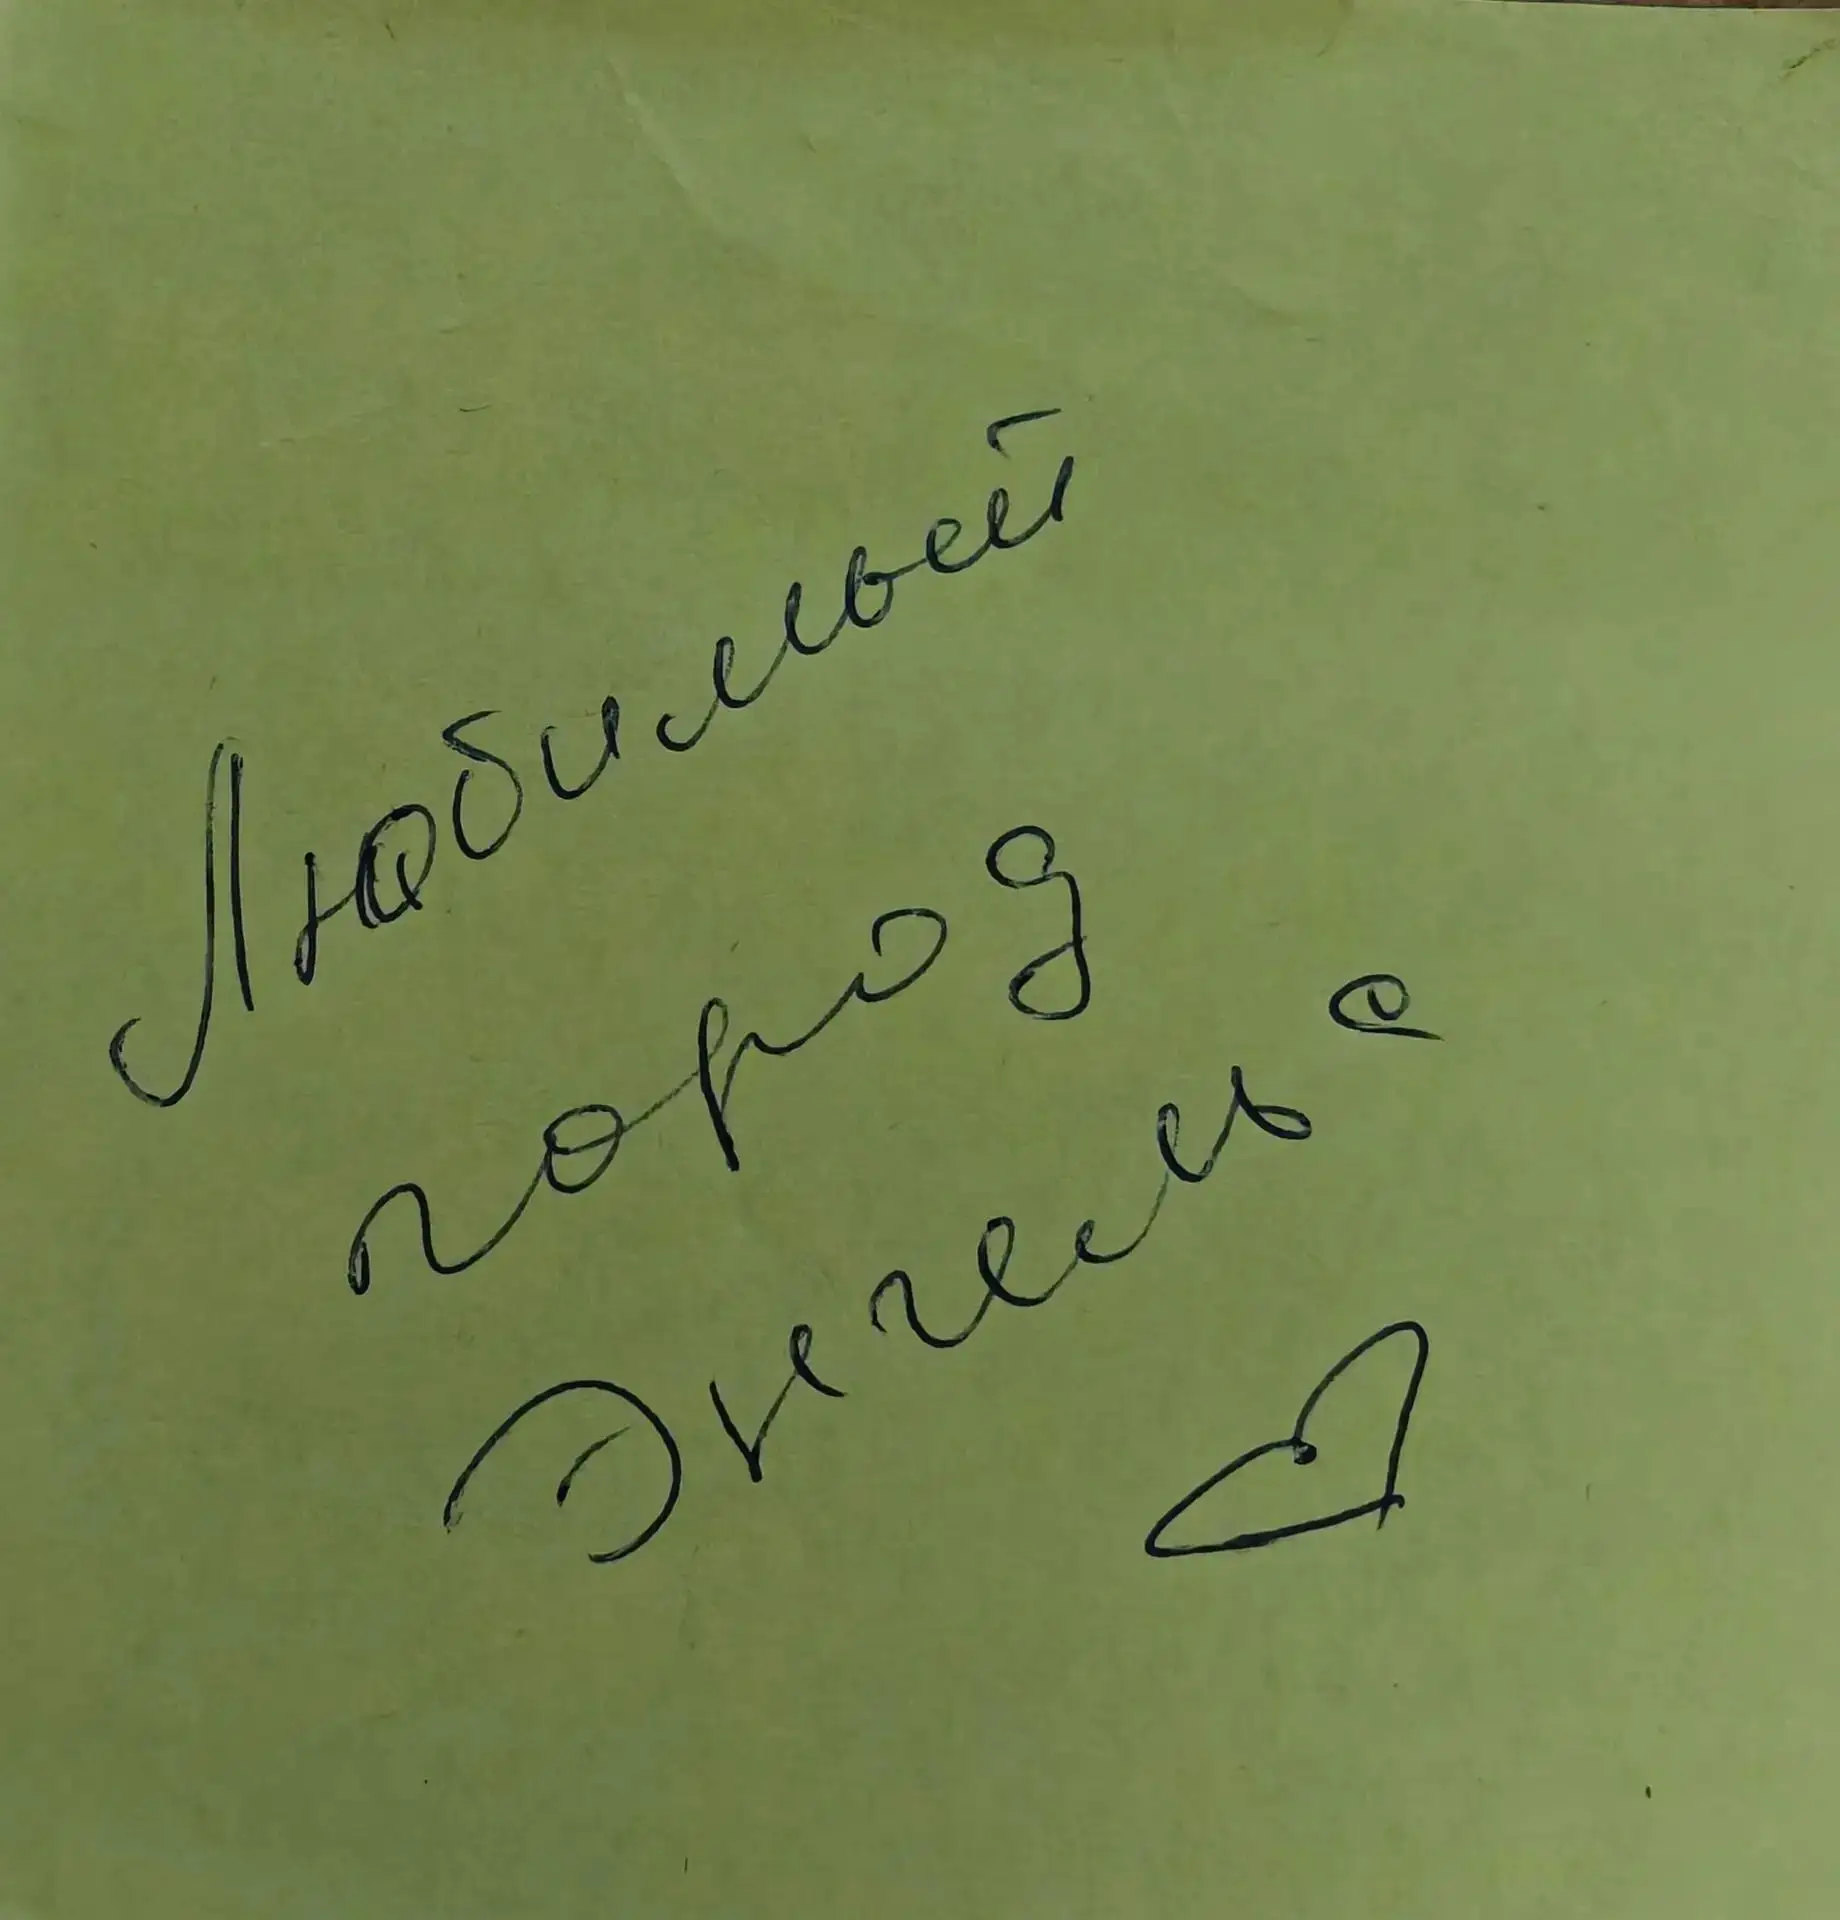 Любимый
город
Энгельс